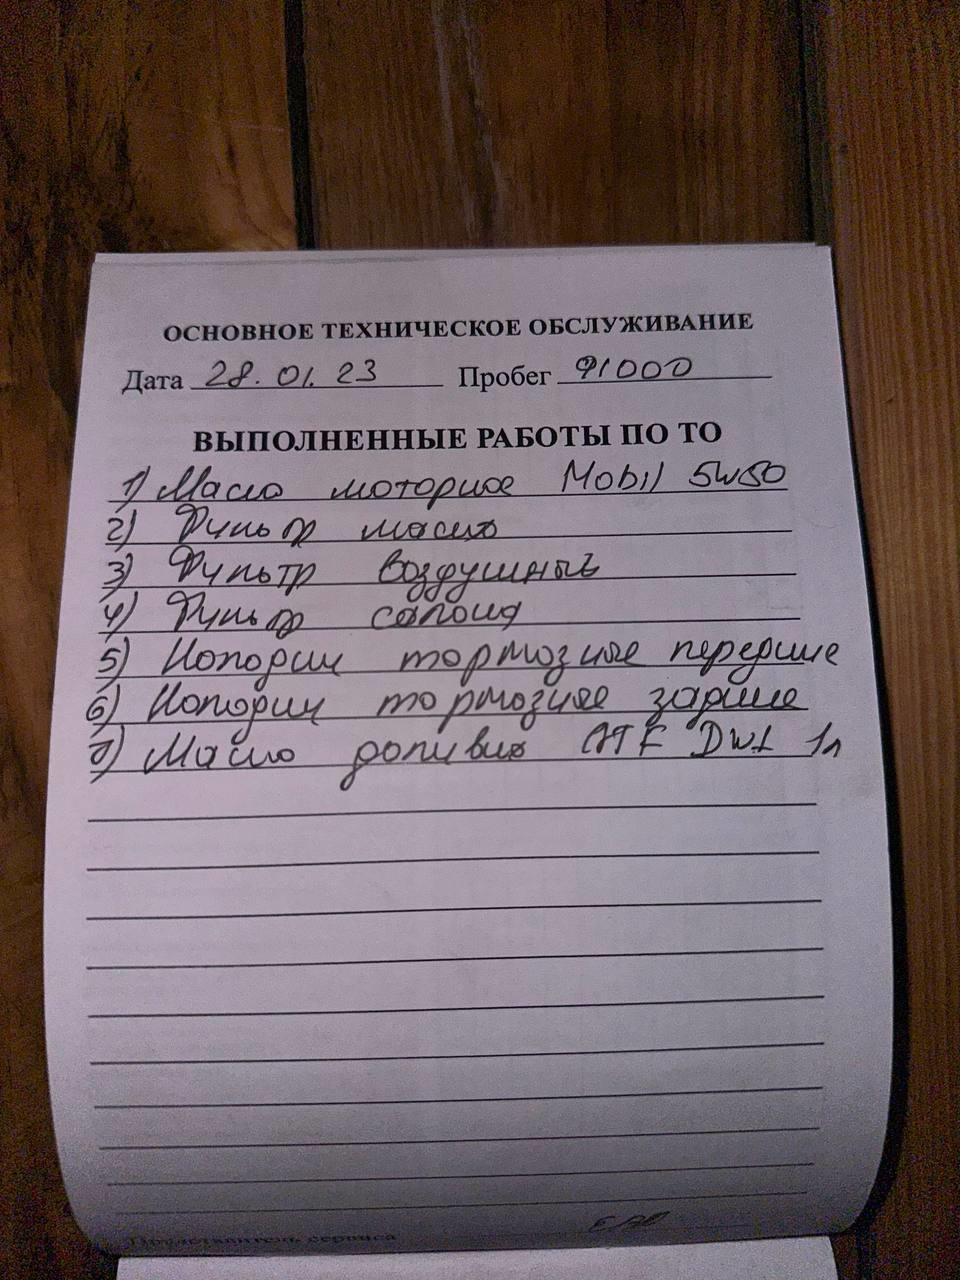 ОСНОВНОЕ ТЕХНИЧЕСКОЕ ОБСЛУЖИВАНИЕ
Дата 28.01.23 Пробег 91000
ВЫПОЛНЕННЫЕ РАБОТЫ ПО ТО
1) Масло моторное Mobil 5W50
2) Фильтр масло
3) Фильтр воздушный
4) Фильтр салона
5) Колодки тормозные передние
6) Колодки тормозные задние
7) Масло доливка ATF DW1 1л
Представитель сервиса